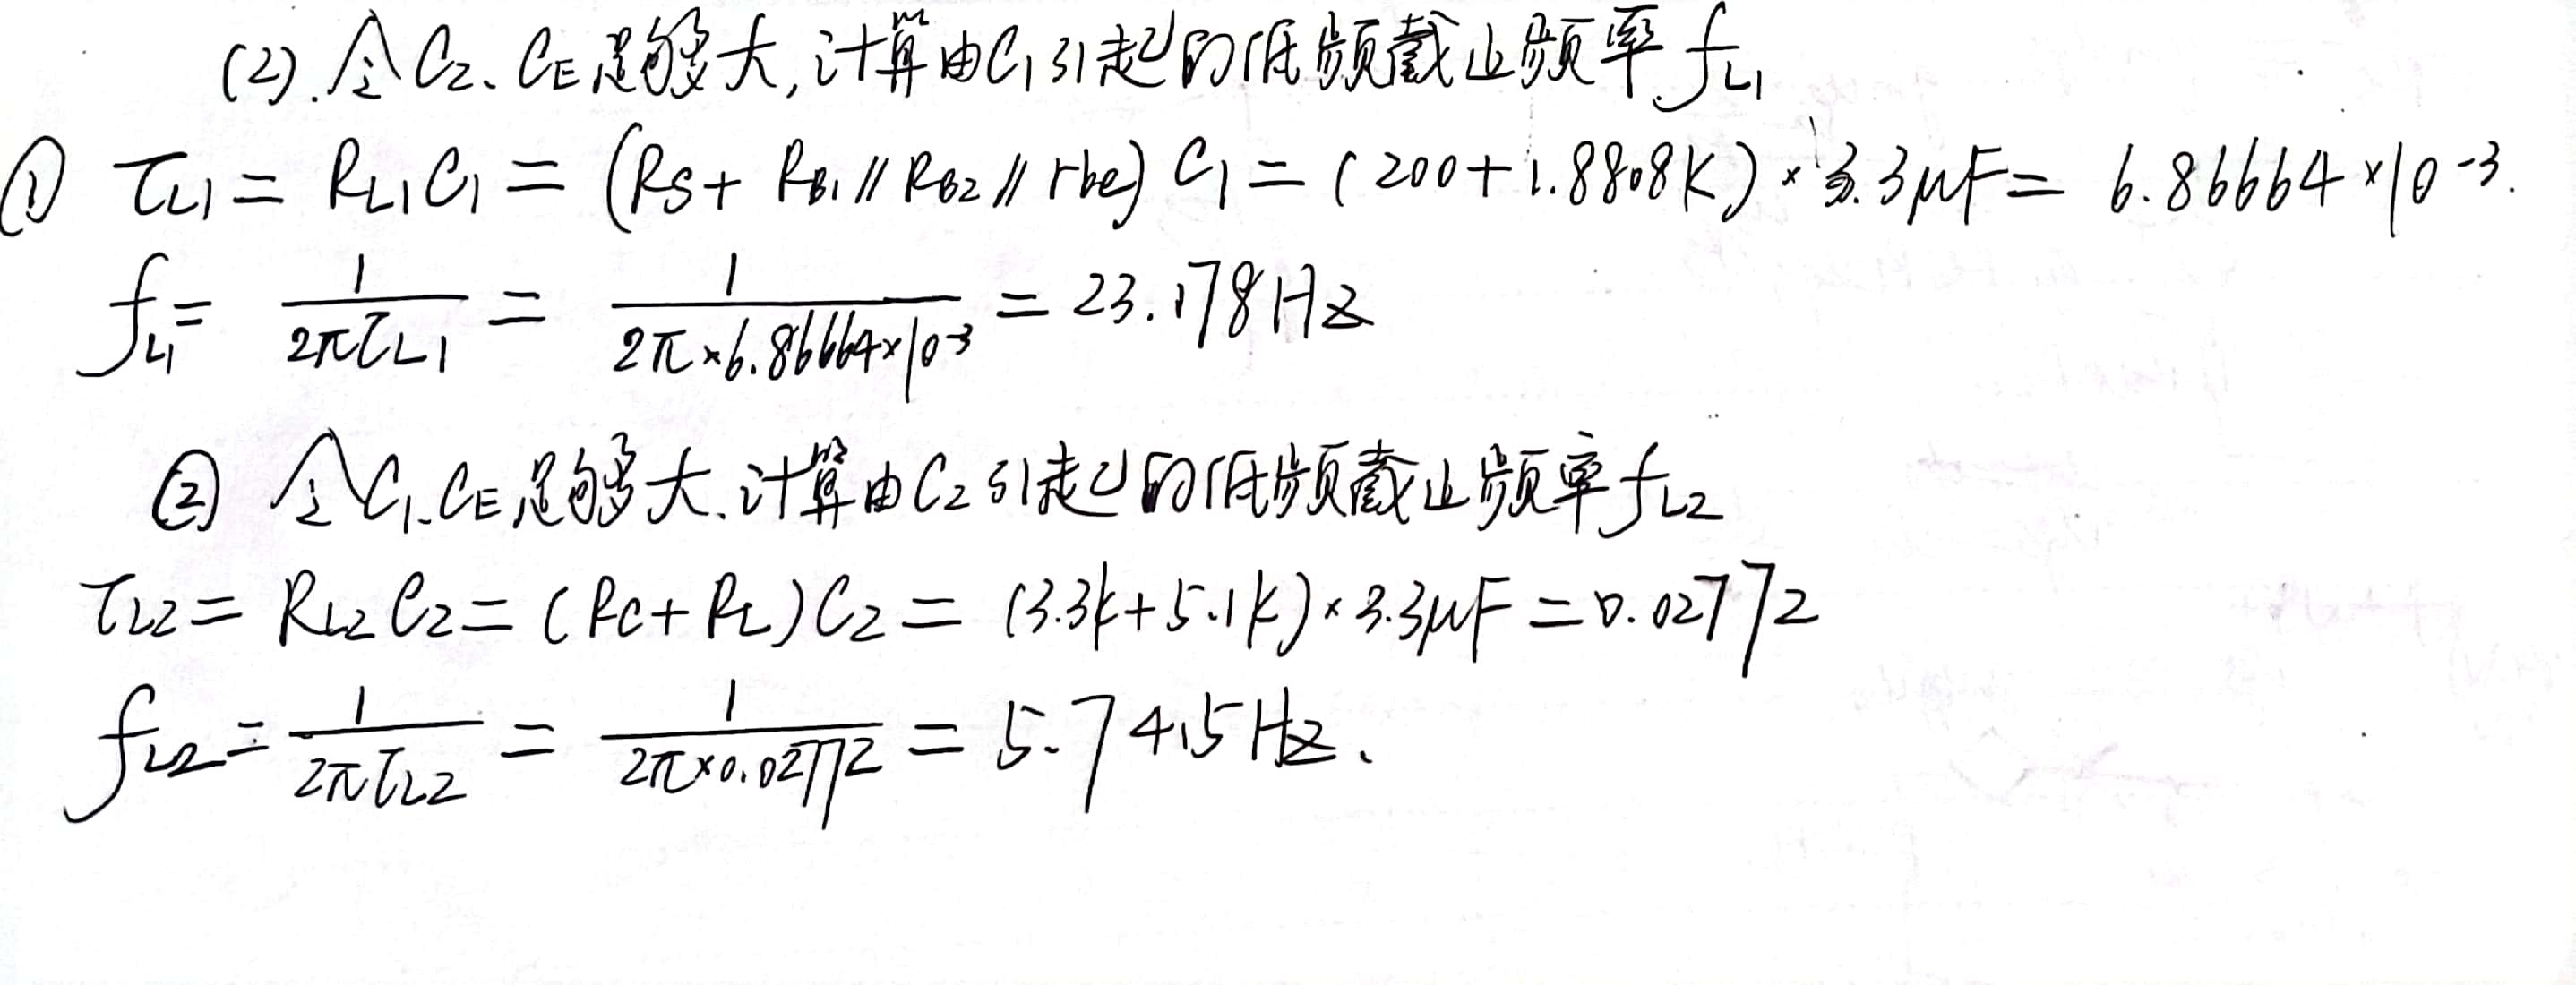 (2). 令C2、CE足够大,计算由C1引起的低频截止频率fL1
① τL1 = RL1C1 = (RS + RB1 // RB2 // rbe) C1 = (200+1.8808K) × 3.3μF = 6.86664 × 10⁻³.
fL1 = 1/2πτL1 = 1/2π×6.86664×10⁻³ = 23.178Hz
② 令C1、CE足够大、计算由C2引起的低频截止频率fL2
τL2 = RL2C2 = (RC + RL)C2 = (3.3K+5.1K) × 3.3μF = 0.02772
fL2 = 1/2πτL2 = 1/2π×0.02772 = 5.7415Hz.